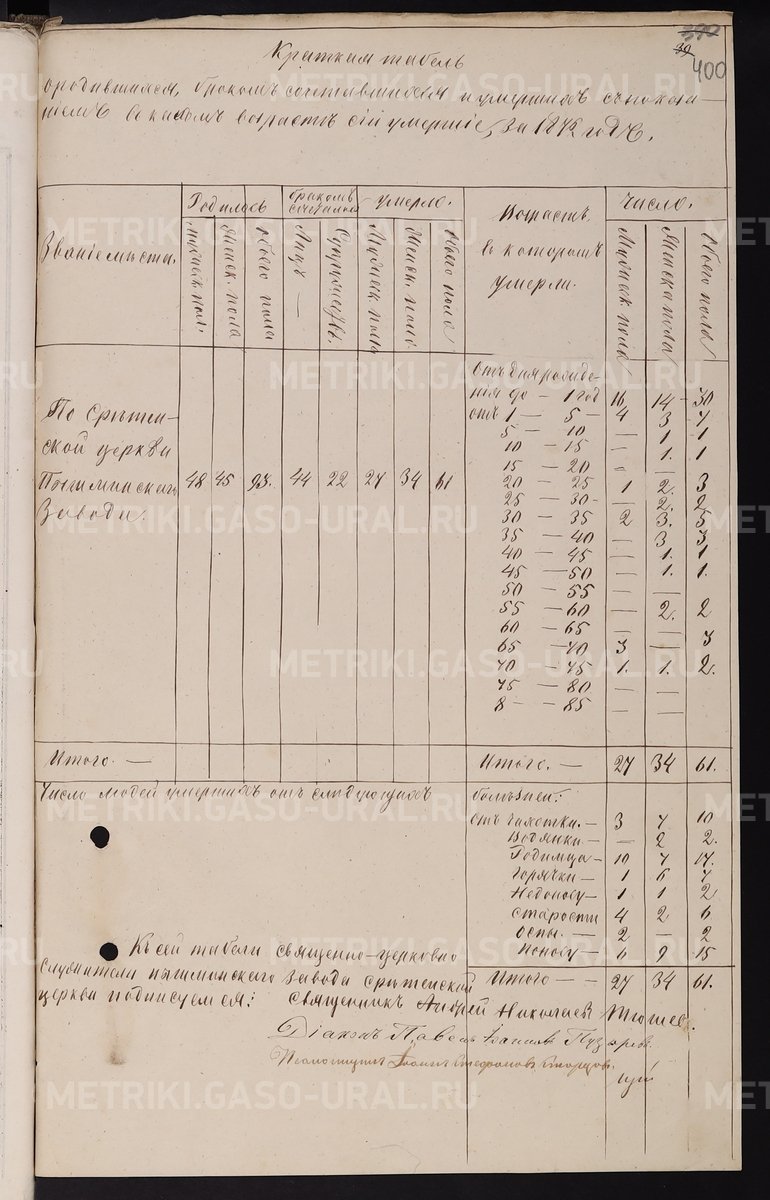 39
400
Краткимъ табель
о родившихся, бракомъ сочетавшихся и умершихъ съ показа-
ніемъ въ какомъ возрастѣ сіи умершіе, за 1872 годъ.
Званіе мѣста.
Родилось
бракомъ сочетались
умерло.
Возрастъ, въ которомъ умерли.
Число.
Мужеск. пол.
Женск. пола
Обоего пола
Лицъ —
Супружествъ.
Мужеск. пола
Женск. пола
Обоего пола
Мужеск. пола
Женска пола
Обоего пола
По Срѣтен-
ской церкви
Пышминскаго 48 45 93. 44 22 27 34 61
Завода.
Отъ дня рожде-
нія до — 1 год 16 14 30
отъ 1 — 5 — 4 3 7
5 — 10 — 1 1
10 — 15 — 1. 1
15 — 20 — —
20 — 25 1 2. 3
25 — 30 — 2. 2
30 — 35 2 3. 5
35 — 40 — 3 3
40 — 45 — 1. 1
45 — 50 — 1. 1.
50 — 55 — —
55 — 60 — 2. 2
60 — 65 — —
65 — 70 3 — 3
70 — 75 1. 1. 2.
75 — 80 — —
8 — 85 — —
Итого. — Итого. — 27 34 61.
Число людей умершихъ отъ слѣдующихъ болѣзней:
отъ чахотки. — 3 7 10
Водянки — — 2 2.
Родимца — 10 7 17.
Горячки — 1 6 7
Недоносу — 1 1 2
старости 4 2 6
оспы. — 2 — 2
Поносу — 6 9 15
Итого — — 27 34 61.
Къ сей табели священно-церковно
служители пышминскаго завода срѣтенской
церкви подписуемся: Священникъ Андрей Николаевъ
Діаконъ Павелъ Пузыревъ.
Псаломщикъ Іоаннъ Стефановъ
METRIKI.GASO-URAL.RU